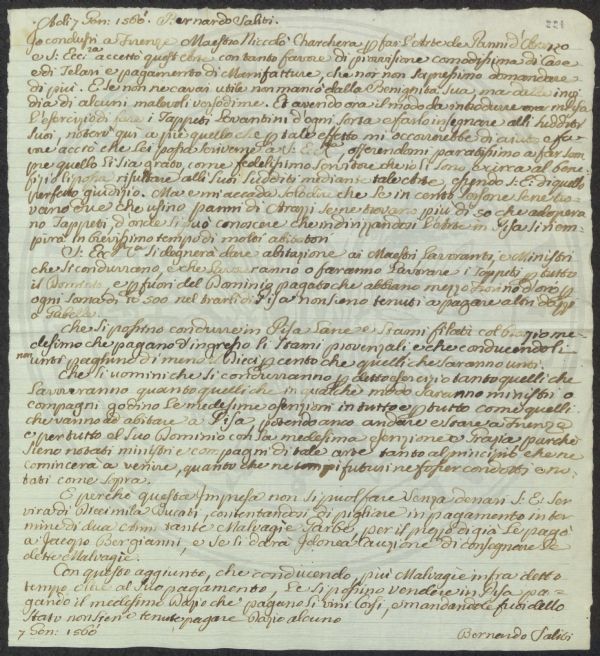 Adi 7 Gen: 1560. Bernardo Saliti.
221
Io condussi a Firenze Maestro Niccolò Charchera p far l'Arte de Panni d'Arazo
e S: Ecc:za accettò questi con tanto favore di provisione comodissima di Case
e di Telari e pagamento di Munifatture, che non sapressimo domandare
di più. E se non ne cavai utile non mancò dalla Benignità Sua, ma dalla invi
dia di alcuni malevoli Et avendo ora il modo da introdurre
l'esercizio di fare i Tappeti Levantini d'ogni sorta e farlo insegnare alli sudditi
Suoi, noterò qui a piè quello che p tale effetto mi occorrerebbe di aiuto e favo
re acciò che Lei possa scrivere a S: Ecc:za offerendomi paratissimo a far sem
pre quello li sia grato, come fedelissimo Servitore che io li sono e circa al bene
fizio possa risultare alli Suoi Sudditi mediante tale Arte, essendo S: E: di quello
perfetto giudizio. Ma e mi accada che se in cento persone se ne tro
vano due che usino panni di Arazzi se ne trovano più di 50 che adopera
no Tappeti, donde si può conoscere che indirizzandosi l'Arte in Pisa si riem
pirà in brevissimo tempo di molti abitatori
S: Ecc:za si degnerà dare abitazione ai Maestri Lavoranti, e Ministri
che si condurrano, e che Lavoreranno o faranno Lavorare i Tappeti p tutto
il Dominio, e p fuori del Dominio pagato che abbiano mezzo fiorino d'oro p
ogni Soma di lb 500 nel trarli di Pisa non sieno tenuti a pagare altri Dazzi
o Gabelle.
Che si possino condurre in Pisa Lane e Stami filati col Dazio me
desimo che pagano d'ingresso li Stami provenzali e che conducendoli
non unti paghino di meno dieci p cento che quelli che saranno unti.
Che li uomini che si condurranno p detto esercizio tanto quelli che
Lavoreranno quanto quelli che in qualche modo saranno ministri o
compagni godino le medesime esenzioni in tutto e p tutto come quelli
che vanno ad abitare a Pisa, potendo anco andare e stare a Firenze
e per tutto el Suo Dominio con La medesima esenzione e Grazia purchè
sieno notati ministri e compagni di tale arte tanto al principio che ne
comincerà a venire, quanto che ne tempi futuri ne fosser condotti e no
tati come sopra.
E perchè questa Impresa non si può fare senza denari S: E: Ser
virà di Diecimila Ducati, contentandosi di pigliare in pagamento in ter
mine di dua Anni tante Malvagie Garbe per il prezzo di già le pagò
a Jacopo Bergianni, e se li darà Idonea Cauzione di consegnare le
dette Malvagie.
Con questo aggiunto, che conducendo più Malvagie infra detto
tempo oltre al suo pagamento, Le si possino vendere in Pisa pa-
gando il medesimo Dazio che pagano li vini Corsi, e mandandole fuori dello
Stato non siene tenute pagare Dazio alcuno
7 Gen: 1560
Bernardo Saliti